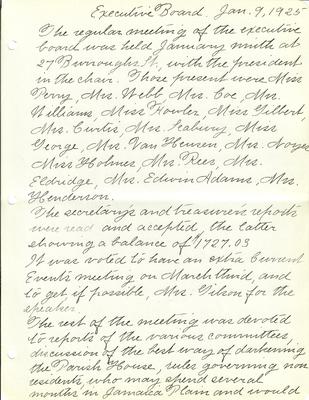 Executive Board. Jan. 9, 1925
The regular meeting of the executive
board was held January ninth at
27 Burroughs St., with the president
in the chair. Those present were Miss
Perry, Mrs. Webb, Mrs. Coe, Mrs.
Williams, Miss Fowler, Miss Gilbert,
Mrs. Curtis, Mrs. Seabury, Miss
George, Mrs. Van Heusen, Mrs. Noyes
Miss Holmes, Mrs. Rees, Mrs.
Eldridge, Mrs. Edwin Adams, Mrs.
Henderson.
The secretary's and treasurer's reports
were read and accepted, the latter
showing a balance of $1727.03
It was voted to have an extra Current
Events meeting on March third, and
to get if possible, Mrs. Gilson for the
speaker.
The rest of the meeting was devoted
to reports of the various committees,
discussion of the best way of darkening
the Parish House, rules governing non
residents, who may spend several
months in Jamaica Plain and would